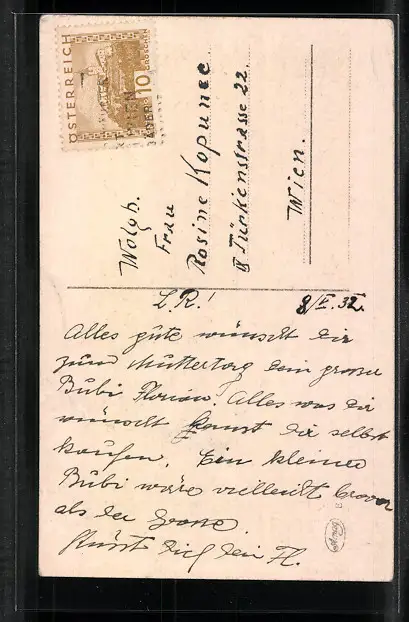 ÖSTERREICH
10
GROSCHEN
WIEN
Wolgb.
Frau
Rosine Kopunec
IX Türkenstrasse 22.
Wien.
L. R.! 8/V. 32.
Alles gute wünscht dir
zum Muttertag dein grosser
Bubi Florian! Alles was dir
wünscht kannst du selbst
kaufen. Ein kleiner
Bubi wäre vielleicht braver
als der grosse.
Küsst dich dein Fl.